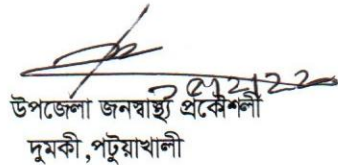 উপজেলা জনস্বাস্থ্য প্রকৌশলী
দুমকী, পটুয়াখালী